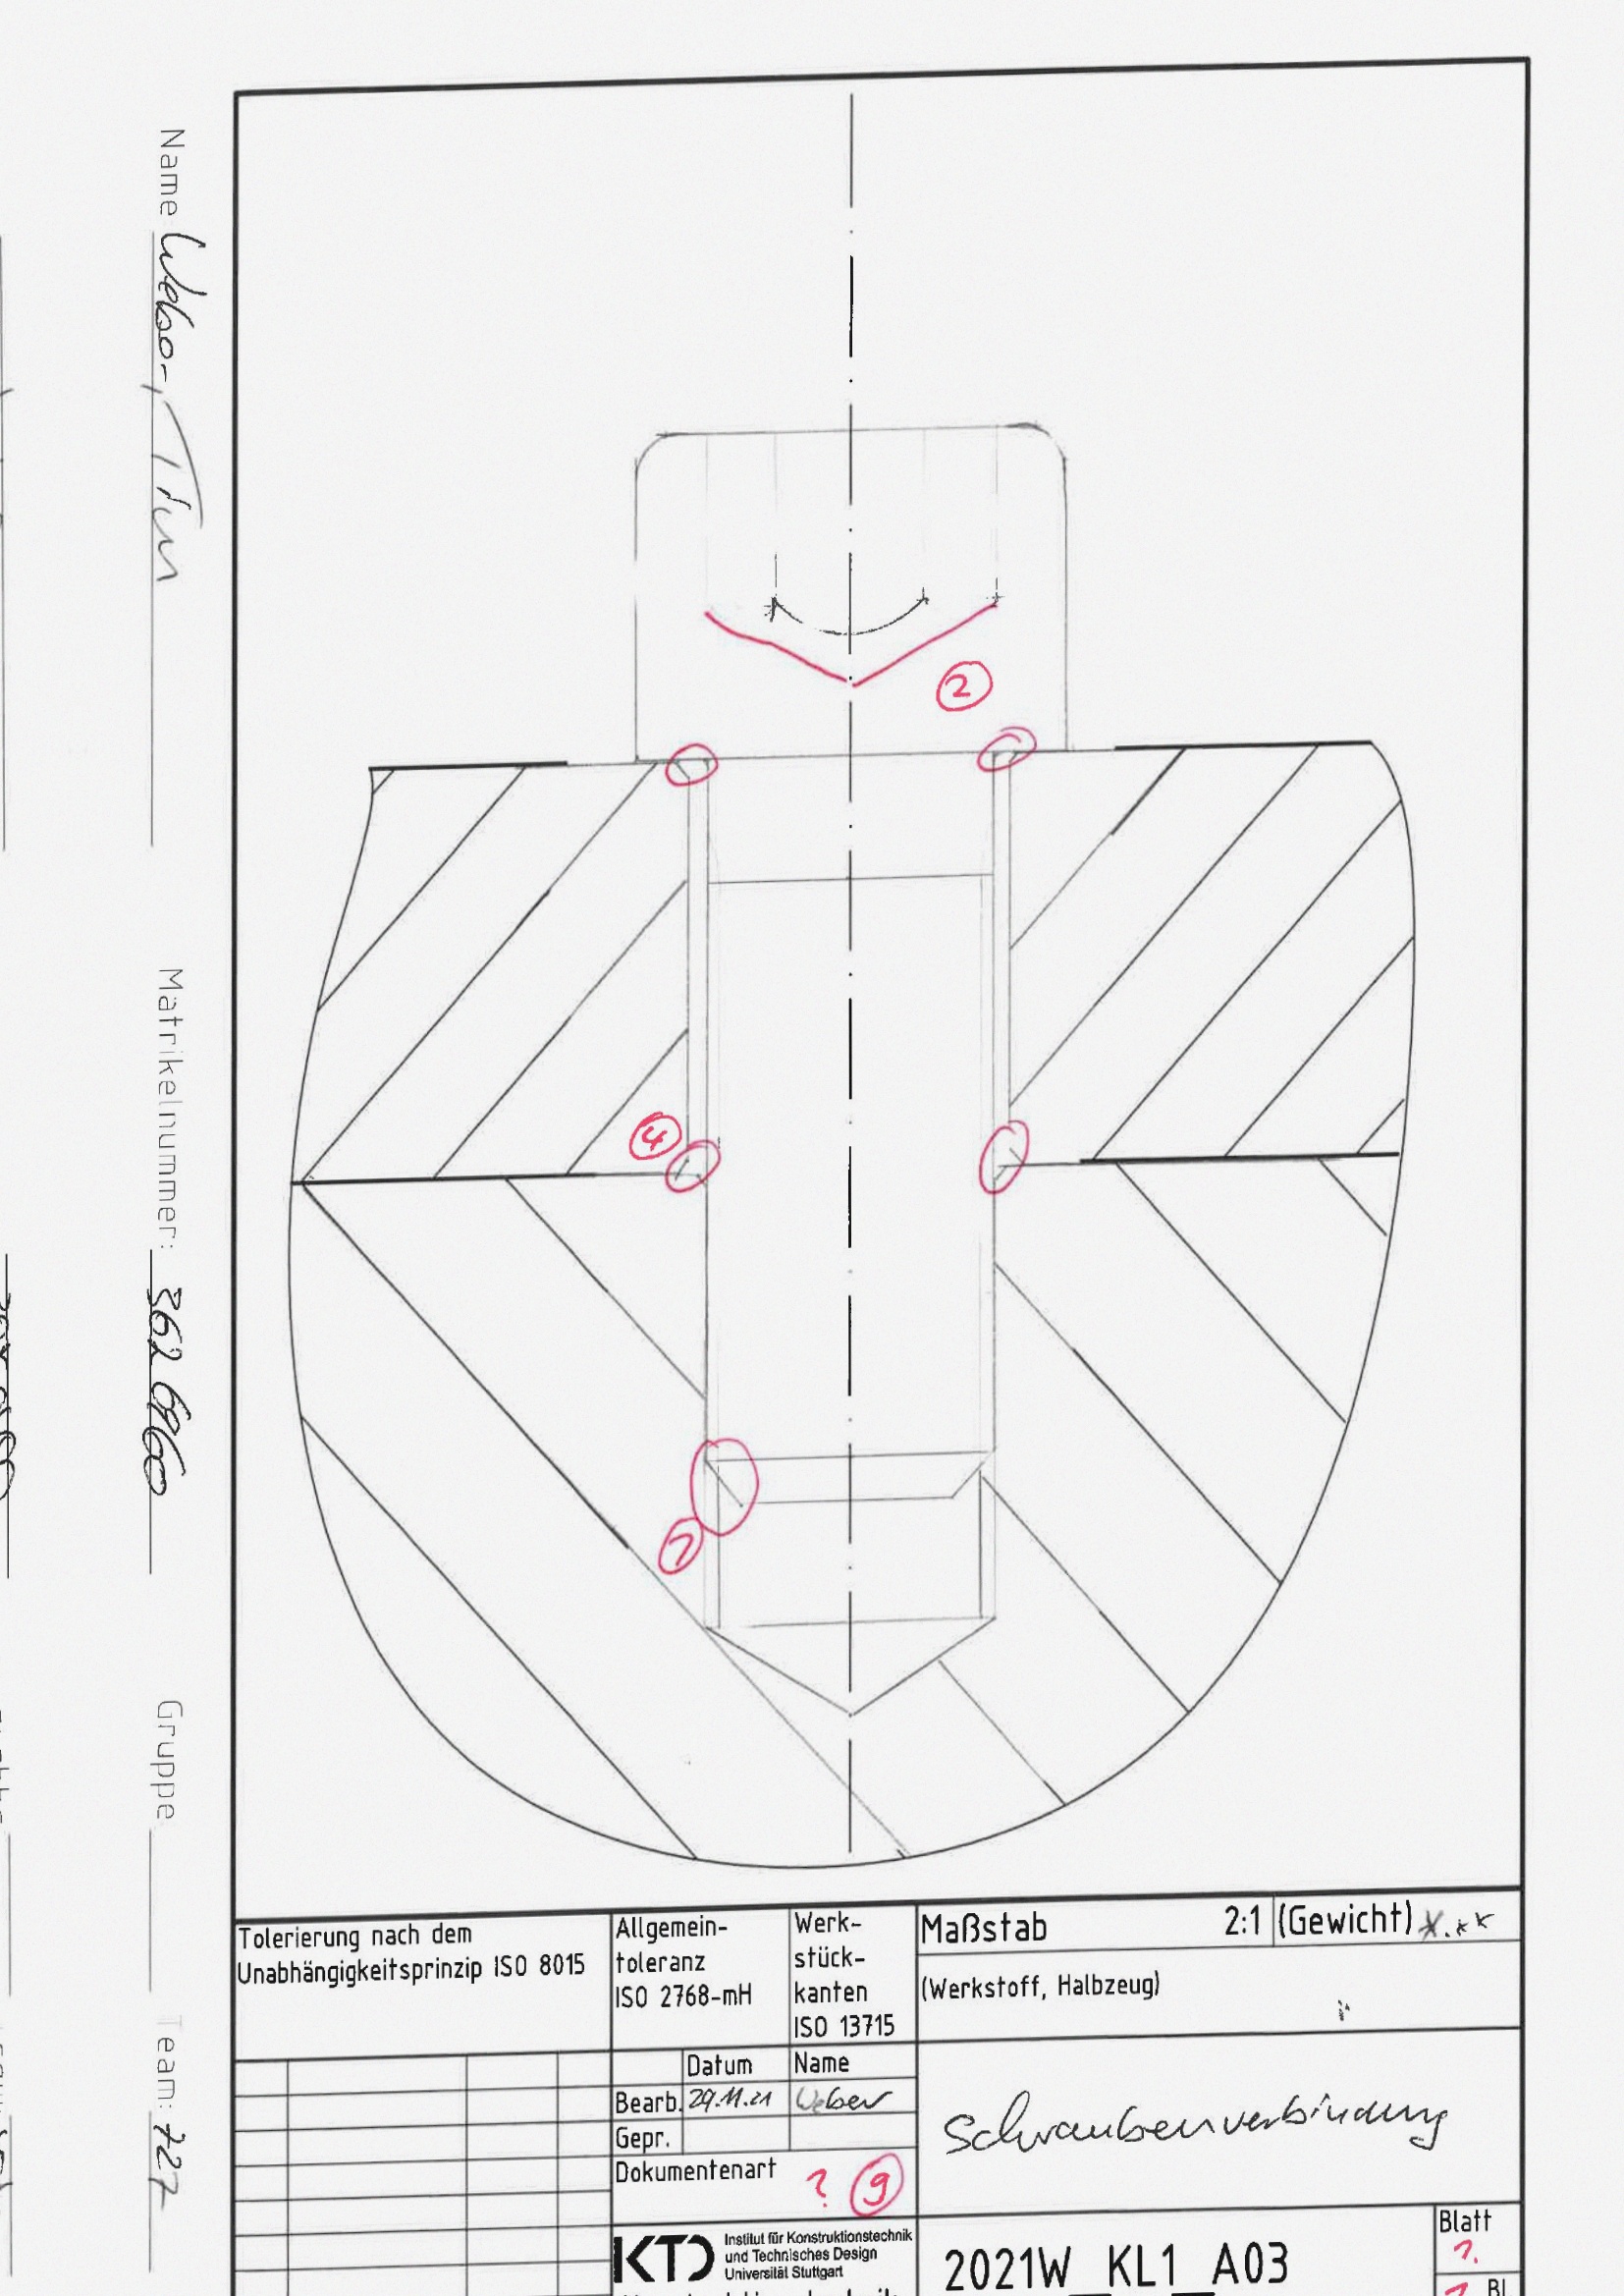 Name Weber, Tim
Matrikelnummer: 362 6960
Gruppe
Team: 727
2
4
7
Tolerierung nach dem
Unabhängigkeitsprinzip ISO 8015
Allgemein-
toleranz
ISO 2768-mH
Werk-
stück-
kanten
ISO 13715
Maßstab 2:1 (Gewicht) x.xx
(Werkstoff, Halbzeug)
Datum Name
Bearb. 29.11.21 Weber
Gepr.
Schraubenverbindung
Dokumentenart ? 9
KTD Institut für Konstruktionstechnik
und Technisches Design
Universität Stuttgart
2021W_KL1_A03
Blatt
?
Bl